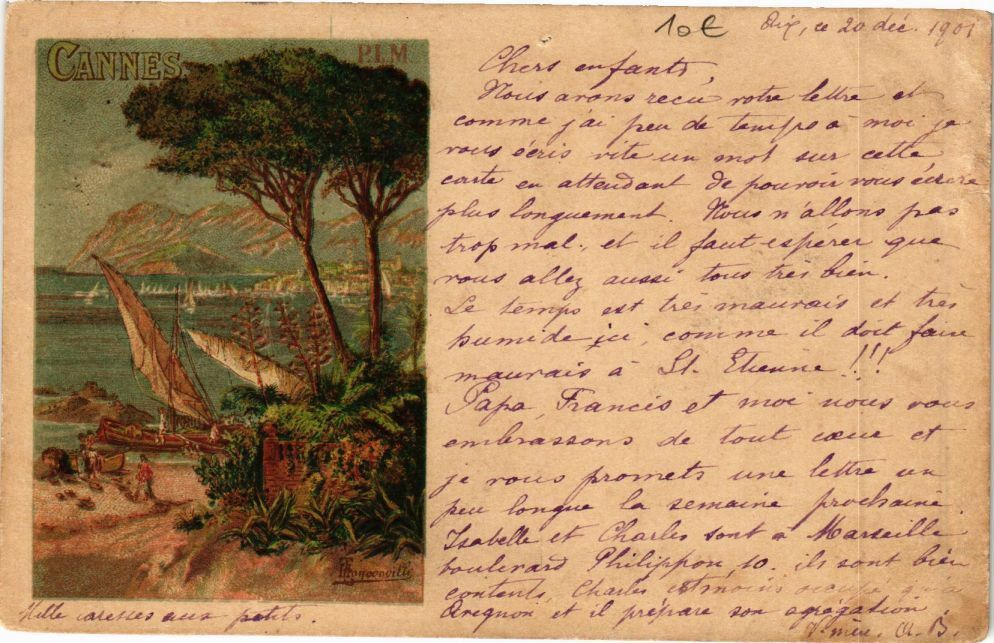 CANNES
P.L.M
10€
Aix, ce 20 déc. 1901
Chers enfants,
Nous avons reçu votre lettre et
comme j'ai peu de temps à moi je
vous écris vite un mot sur cette
carte en attendant de pouvoir vous écrire
plus longuement. Nous n'allons pas
trop mal. et il faut espérer que
vous allez aussi tous très bien.
Le temps est très mauvais et très
humide ici, comme il doit faire
mauvais à St. Etienne !!!
Papa, Francis et moi nous vous
embrassons de tout cœur et
je vous promets une lettre un
peu longue la semaine prochaine.
Isabelle et Charles sont à Marseille
boulevard Philippon, 10. ils sont bien
contents, Charles est moins occupé qu'à
Avegnon et il prépare son agrégation.
V. mère, A. B.
Mille caresses aux petits.